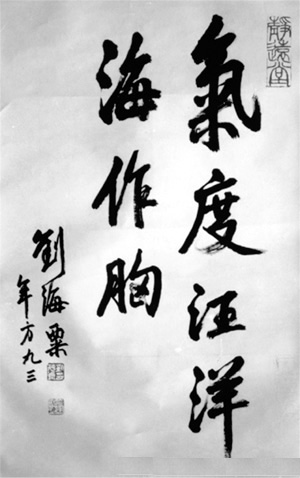 靜遠堂
氣度汪洋
海作胸
劉海粟
年方九三